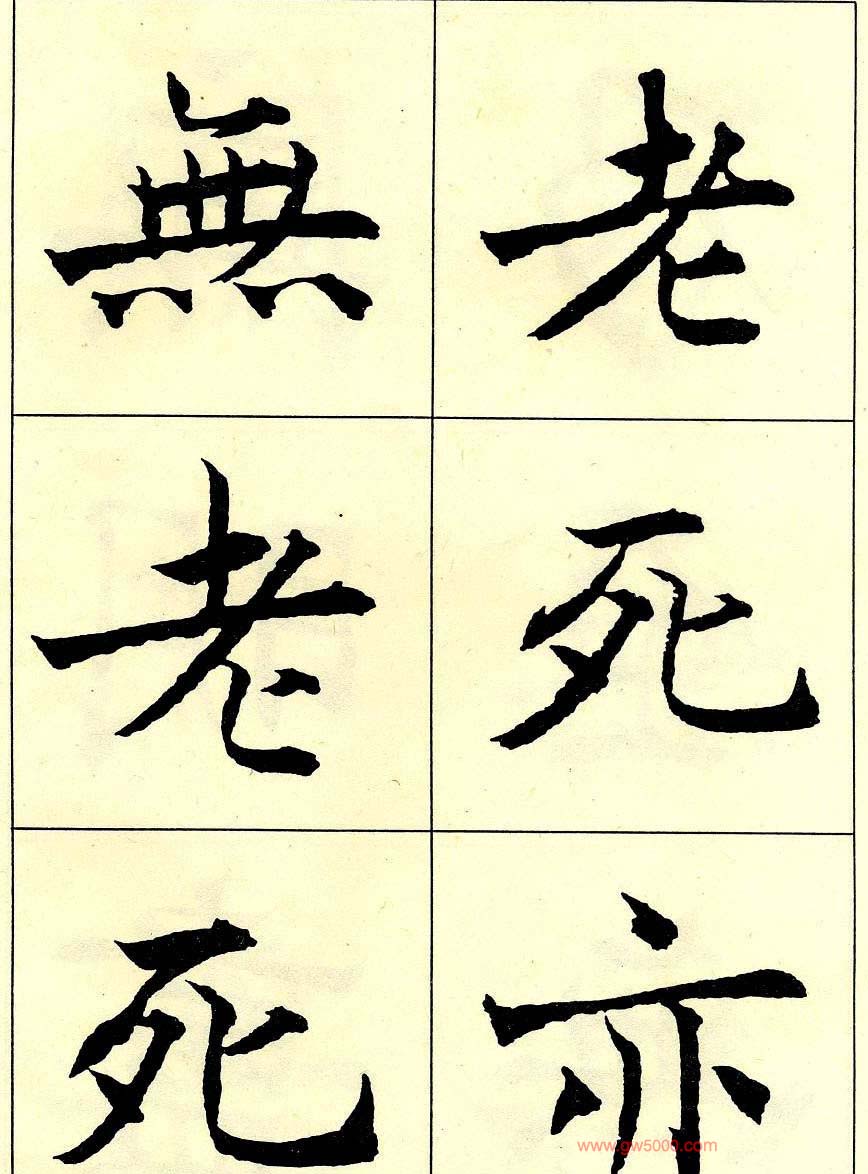 老死亦
無老死
www.gw5000.com